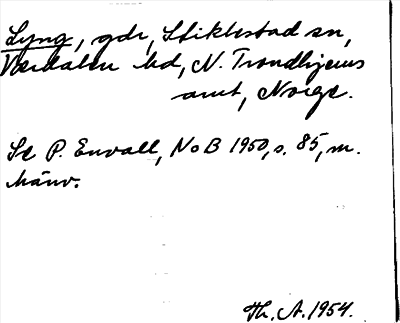 Lyng, gdr, Stiklestad sn,
Værdalen hd, N. Trondhjems
amt, Norge.
Se P. Envall, NoB 1950, s. 85, m.
hänv.
Th. A. 1954.